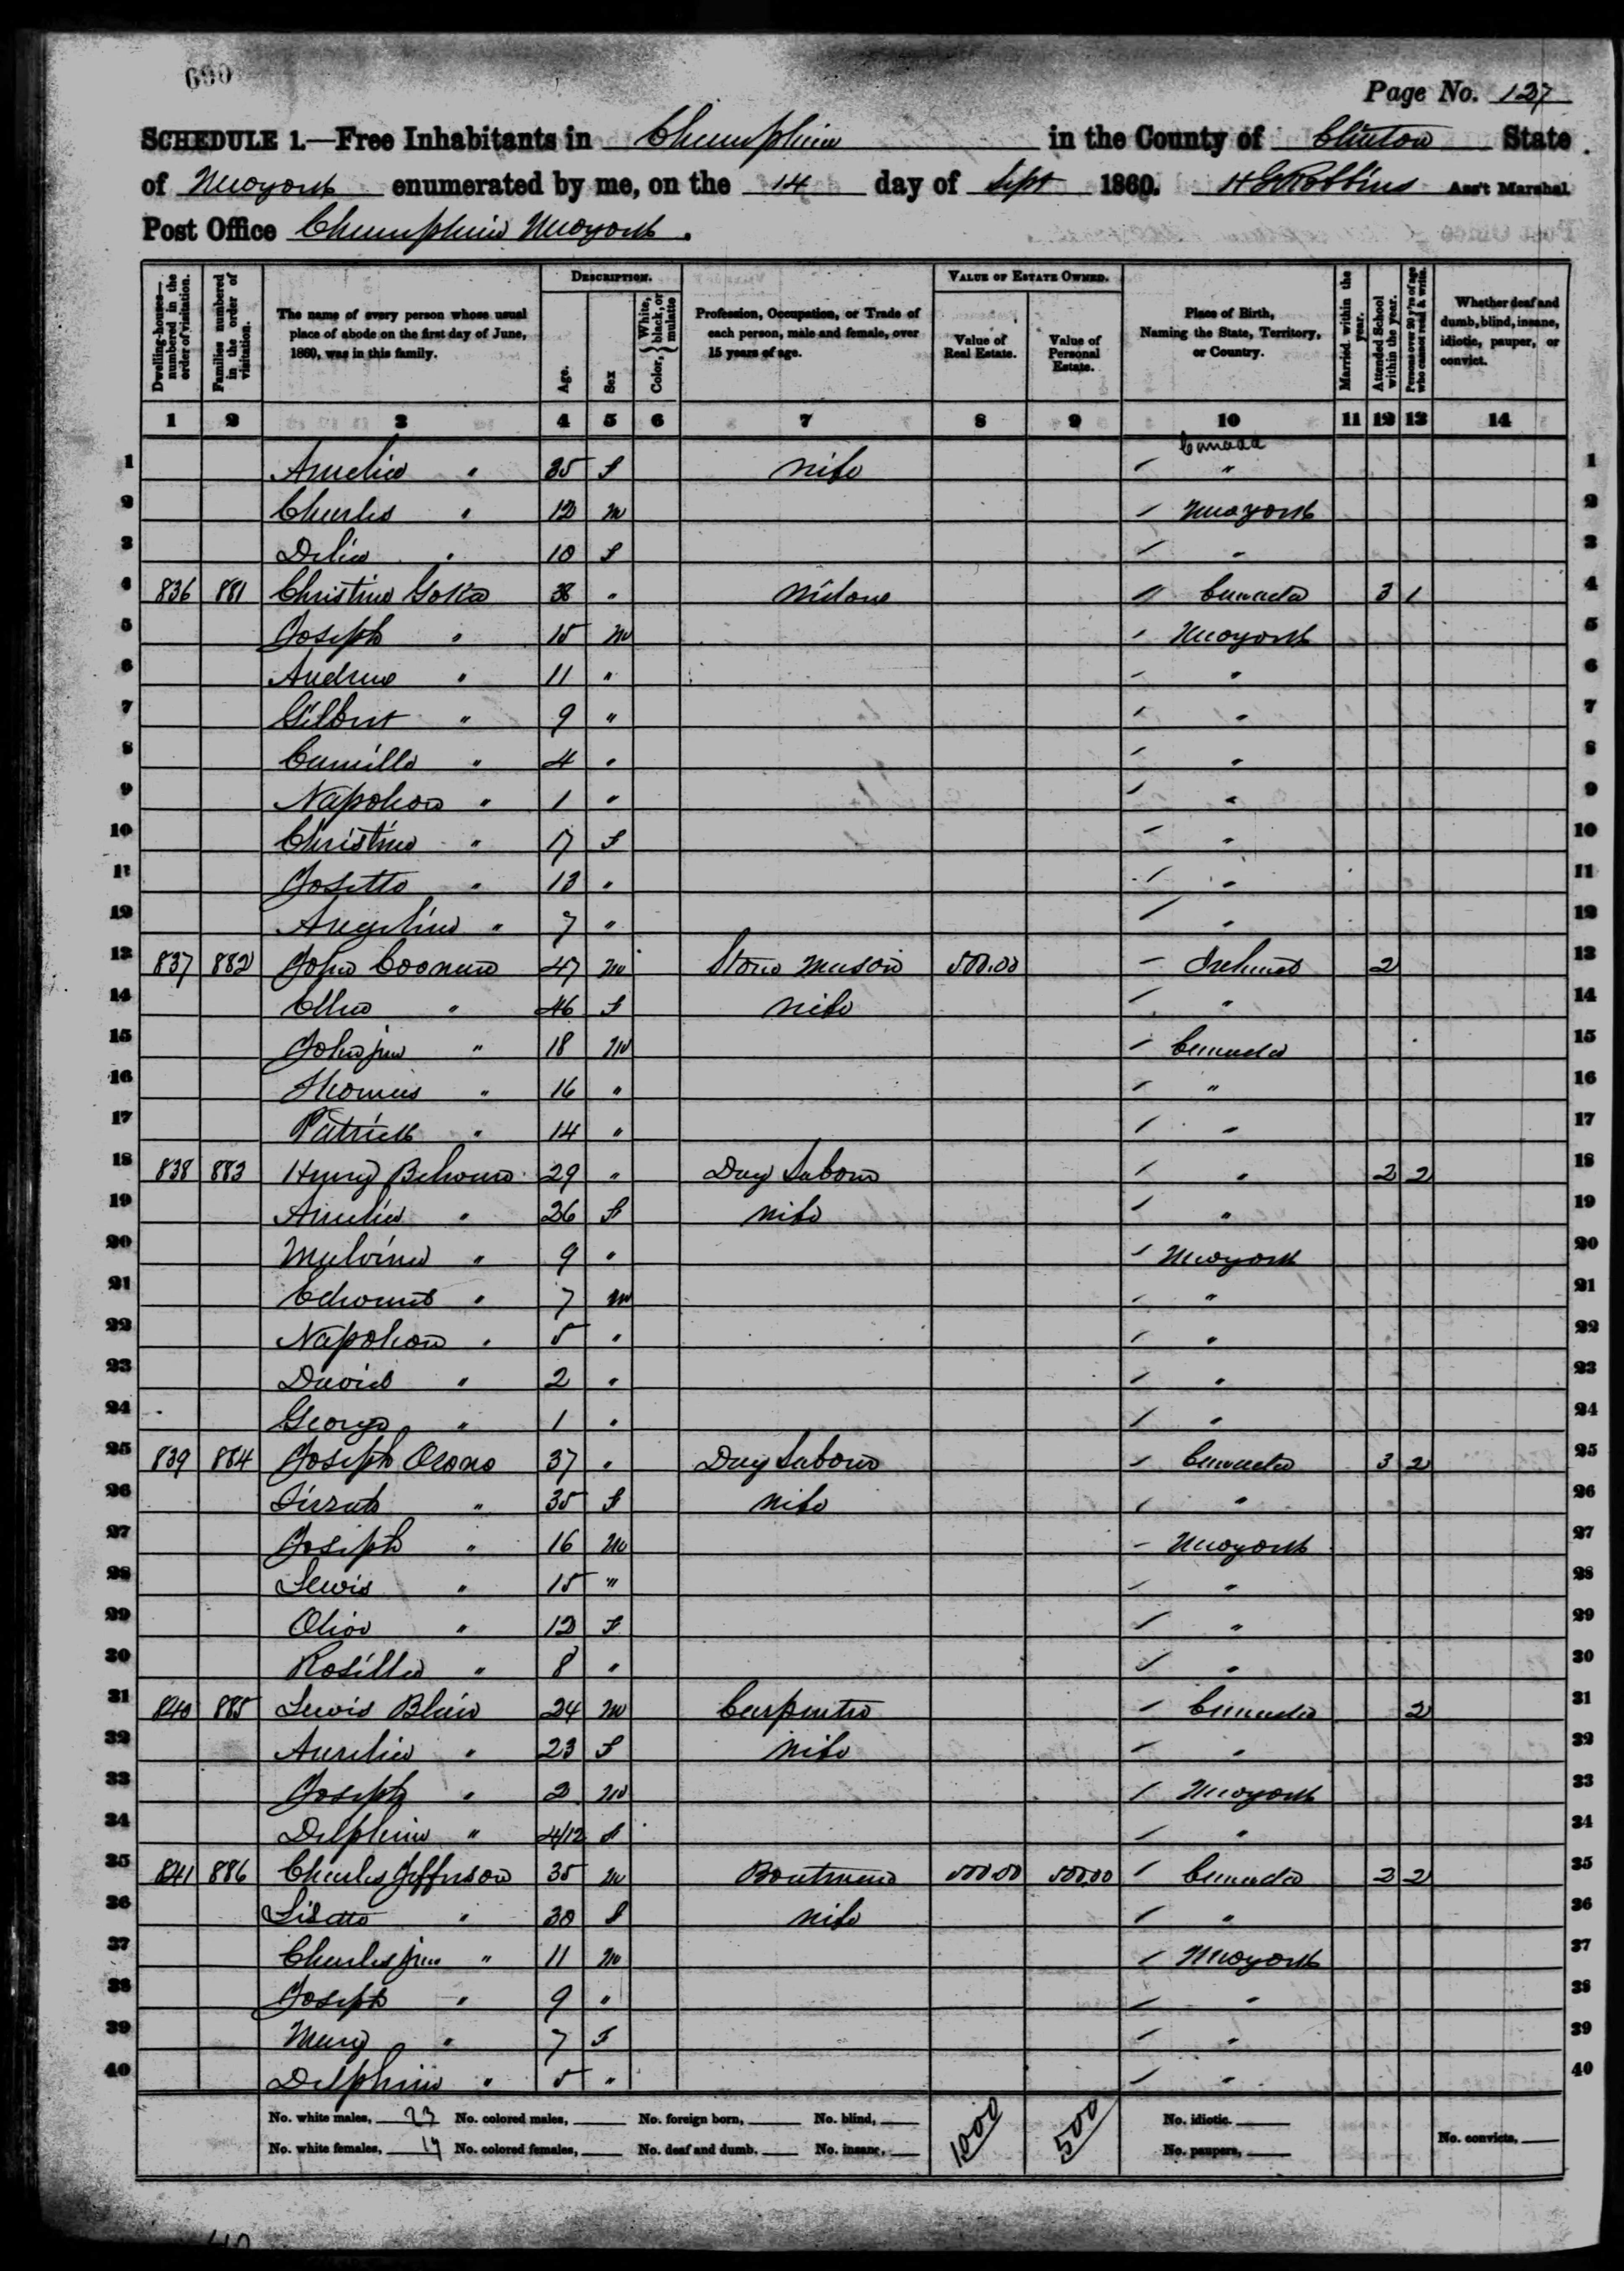 690
Page No. 127
SCHEDULE 1.—Free Inhabitants in Champlain in the County of Clinton State
of New York enumerated by me, on the 14 day of Sept 1860. H G Robbins Ass't Marshal
Post Office Champlain New York.
Dwelling-houses—numbered in the order of visitation.
Families numbered in the order of visitation.
The name of every person whose usual place of abode on the first day of June, 1860, was in this family.
DESCRIPTION.
Age.
Sex
Color, { White, black, or mulatto
Profession, Occupation, or Trade of each person, male and female, over 15 years of age.
VALUE OF ESTATE OWNED.
Value of Real Estate.
Value of Personal Estate.
Place of Birth, Naming the State, Territory, or Country.
Married within the year.
Attended School within the year.
Persons over 20 y'rs of age who cannot read & write.
Whether deaf and dumb, blind, insane, idiotic, pauper, or convict.
1 2 3 4 5 6 7 8 9 10 11 12 13 14
Canada
1 Amelia " 35 f Wife " 1
2 Charles " 12 m New York 2
3 Delia " 10 f " 3
4 836 881 Christine 38 " Widow Canada 3 1 4
5 Joseph " 15 m New York 5
6 Andrew " 11 " " 6
7 Gilbert " 9 " " 7
8 Camille " 4 " " 8
9 Napoleon " 1 " " 9
10 Christine " 17 f " 10
11 Josette " 13 " " 11
12 Angeline " 7 " " 12
13 837 882 John Coonan 47 m Stone Mason 500.00 Ireland 2 13
14 Ellen " 46 f Wife " 14
15 John jun " 18 m Canada 15
16 Thomas " 16 " " 16
17 Patrick " 14 " " 17
18 838 883 Henry 29 " Day Labour " 2 2 18
19 Amelia " 26 f Wife " 19
20 Malvina " 9 " New York 20
21 Edward " 7 m " 21
22 Napoleon " 5 " " 22
23 David " 2 " " 23
24 George " 1 " " 24
25 839 884 Joseph 37 " Day Labour Canada 3 2 25
26 " 35 f Wife " 26
27 Joseph " 16 m New York 27
28 Lewis " 15 " " 28
29 Olive " 12 f " 29
30 Rosilla " 8 " " 30
31 840 885 Lewis Blair 24 m Carpenter Canada 2 31
32 Aurelia " 23 f Wife " 32
33 Joseph " 2 m New York 33
34 Delphine " 4/12 f " 34
35 841 886 Charles Jefferson 35 m Boatman 500.00 500.00 Canada 2 2 35
36 Lisette " 30 f Wife " 36
37 Charles jun " 11 m New York 37
38 Joseph " 9 " " 38
39 Mary " 7 f " 39
40 Delphine " 5 " " 40
No. white males, 23 No. colored males, No. foreign born, No. blind, 1000 500 No. idiotic.
No. white females, 17 No. colored females, No. deaf and dumb. No. insane, No. paupers, No. convicts,